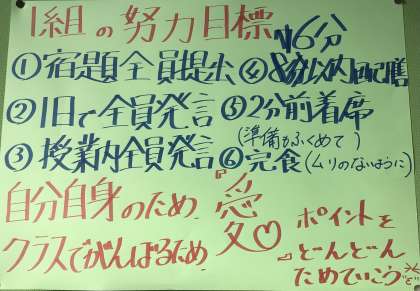 1組の努力目標
16分
①宿題全員提出
②1日で全員発言
③授業内全員発言
④8分以内配膳
⑤2分前着席
(準備もふくめて)
⑥完食(ムリのないように)
自分自身のため
クラスでがんばるため
『愛♡』
ポイントを
どんどん
ためていこう